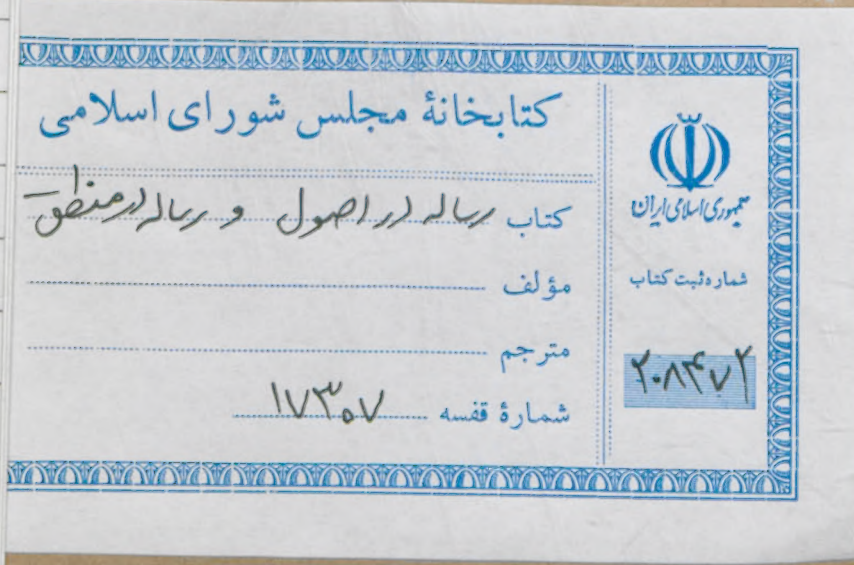 کتابخانهٔ مجلس شورای اسلامی
کتاب رساله در اصول و رساله در منطق
مؤلف
مترجم
شمارهٔ قفسه ۱۷۳۰۷
جمهوری اسلامی ایران
شماره ثبت کتاب
۲۰۸۴۷۲